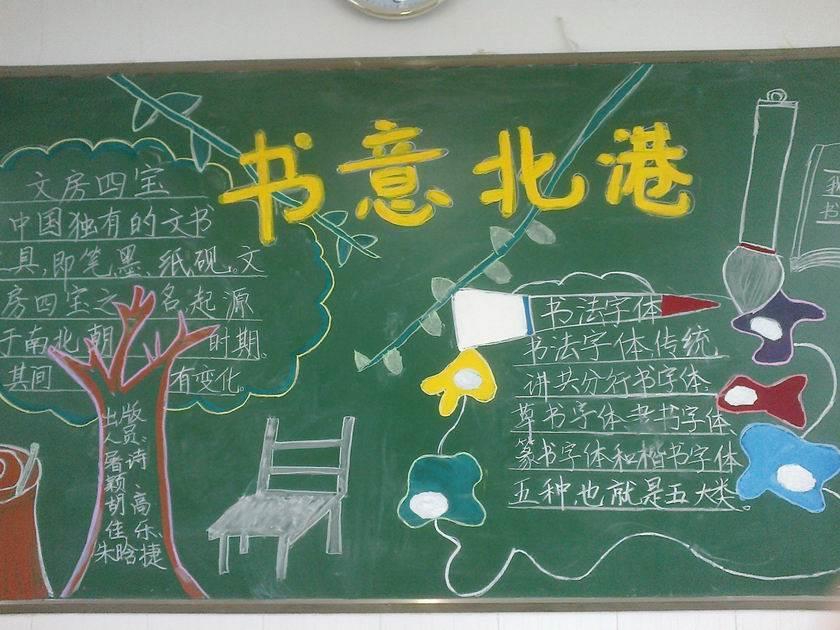 书意北港
文房四宝
中国独有的文书
具,即笔、墨、纸、砚。文
房四宝之名,起源
于南北朝时期。
其间 有变化。
出版人员:
屠诗颖、
胡高佳、
朱晗捷
书法字体
书法字体,传统
讲共分行书字体、
草书字体、隶书字体、
篆书字体和楷书字体
五种,也就是五大类。